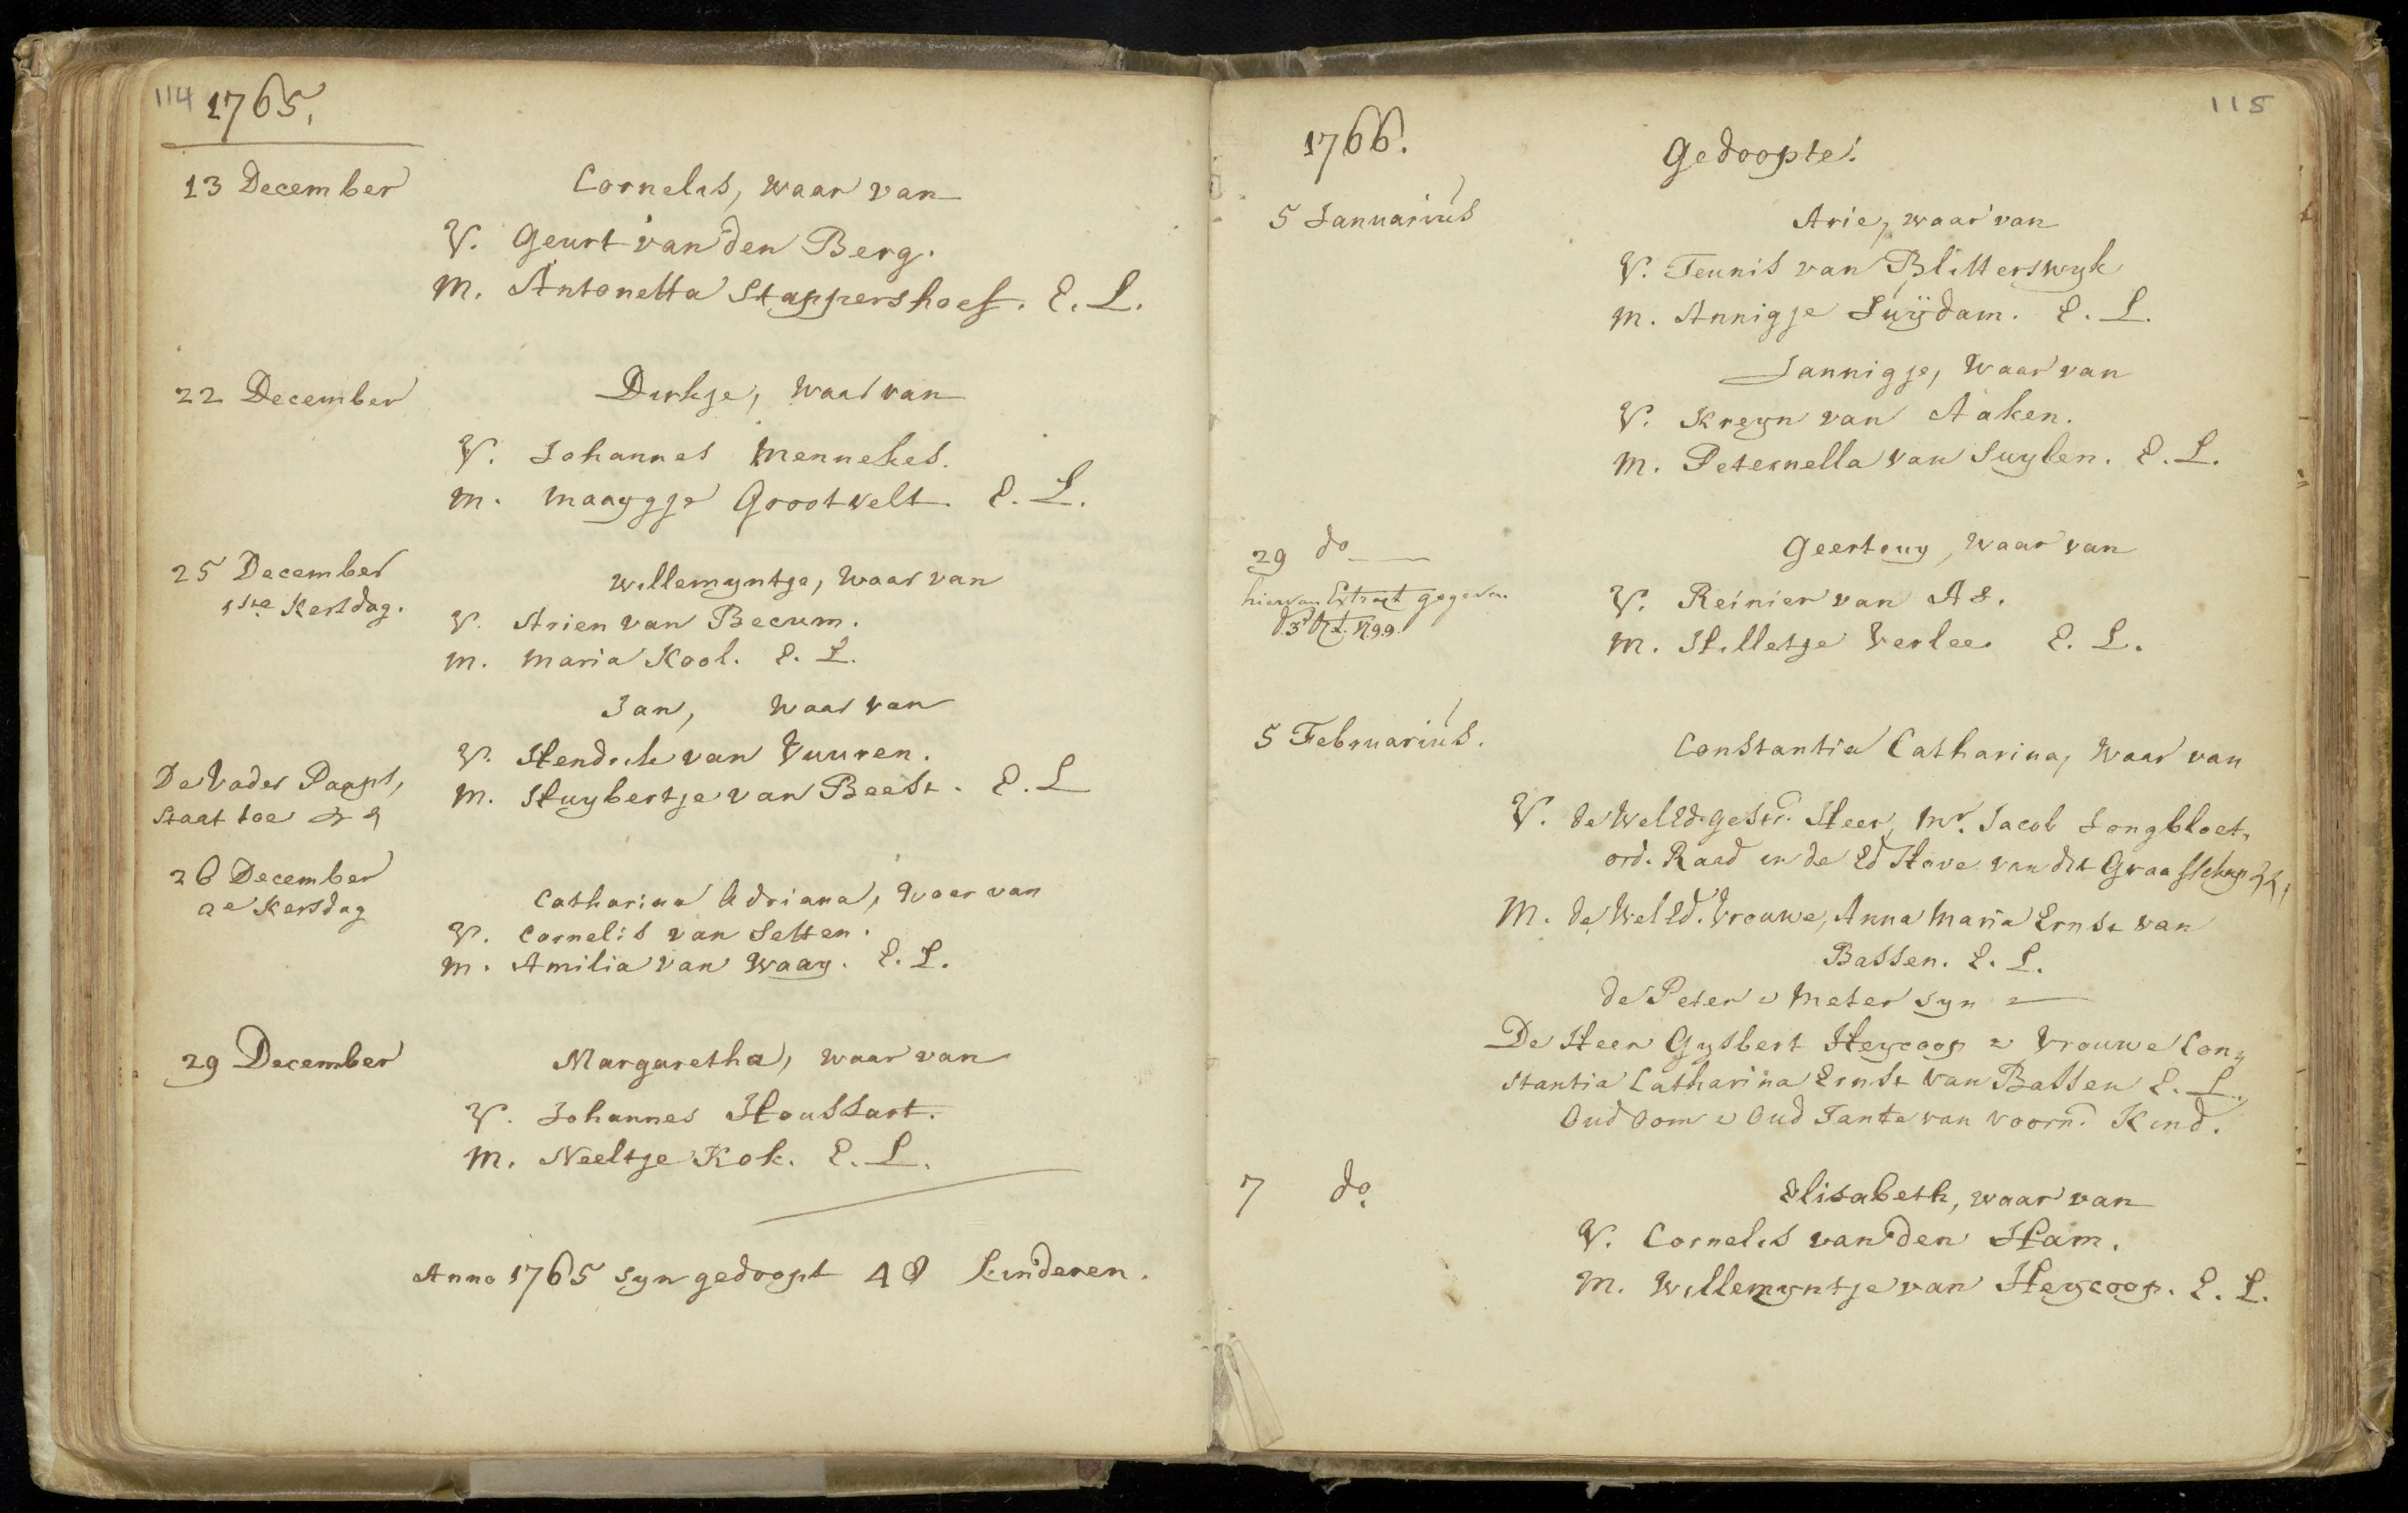 114 1765.
13 December
Cornelis, waar van
V. Geurt van den Berg.
M. Antonetta Stappershoef. E. L.
22 December
Dirkje, waar van
V. Johannes Mennekes.
M. Maaygje Grootvelt. E. L.
25 December
1ste Kersdag.
Willemyntje, waar van
V. Arien van Becum.
M. Maria Kool. E. L.
Jan, waar van
V. Hendrik van Vuuren.
M. Huybertje van Beest. E. L
De Vader Paapt,
Staat toe
26 December
2e Kersdag
Catharina Adriana, waar van
V. Cornelis van Setten.
M. Amilia van Waay. E. L.
29 December
Margaretha, waar van
V. Johannes Houssart.
M. Neeltje Kok. E. L.
Anno 1765 syn gedoopt 48 kinderen.
115
1766.
Gedoopte.
5 Januarius
Arie, waar van
V. Teunis van Blitterswyk
M. Annigje Suÿdam. E. L.
Jannigje, waar van
V. Kreyn van Aaken.
M. Peternella van Suylen. E. L.
29 do
hiervan Extract gegeven
Geertruy, waar van
V. Reinier van As.
M. Hilletje Verlee. E. L.
5 Februarius.
Constantia Catharina, waar van
V. de WelEd. gestr. Heer, Mr. Jacob Jongbloet,
ord. Raad in de Ed Hove van dit Graafschap
M. de WelEd. Vrouwe, Anna Maria Ernst van
Bassen. E. L.
de Peter & Meter syn
De Heer Gysbert Heycoop & Vrouwe Con
stantia Catharina Ernst van Bassen E. L.
Oud Oom & Oud Tante van voorn. Kind.
7 do.
Elisabeth, waar van
V. Cornelis van den Ham.
M. Willemyntje van Heycoop. E. L.